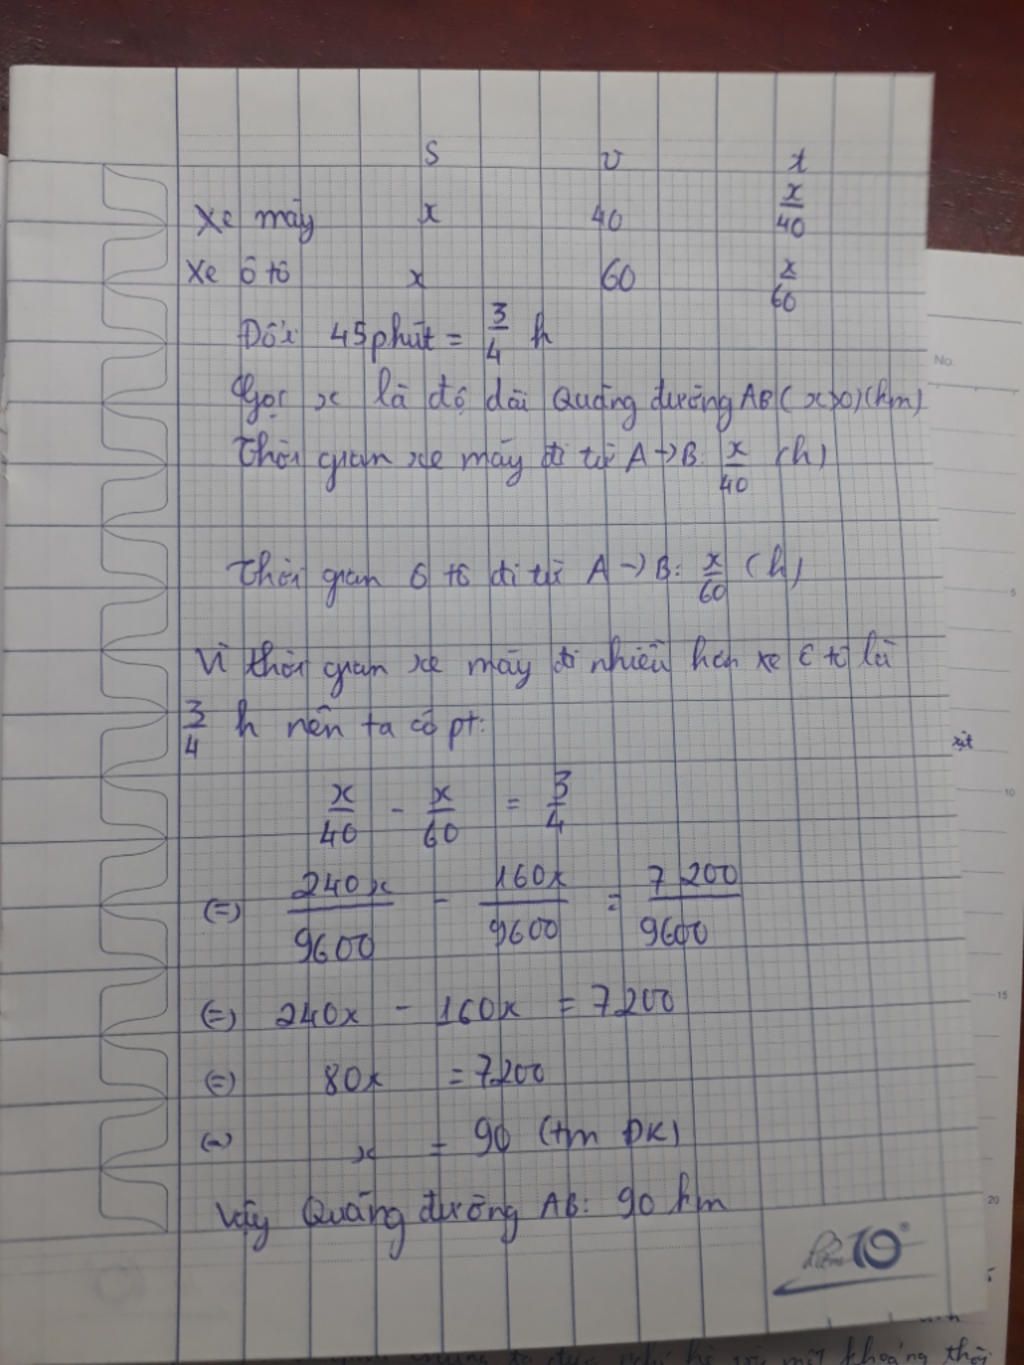 S v t
Xe máy x 40 x/40
Xe ô tô x 60 x/60
Đổi: 45 phút = 3/4 h
Gọi x là độ dài Quãng đường AB (x>0)(km)
Thời gian xe máy đi từ A→B: x/40 (h)
Thời gian ô tô đi từ A→B: x/60 (h)
Vì thời gian xe máy đi nhiều hơn xe ô tô là
3/4 h nên ta có pt:
x/40 - x/60 = 3/4
(=) 240x/9600 - 160x/9600 = 7200/9600
(=) 240x - 160x = 7200
(=) 80x = 7200
(=) x = 90 (tm ĐK)
Vậy Quãng đường AB: 90 km
Điểm 10
No.
5
10
15
20